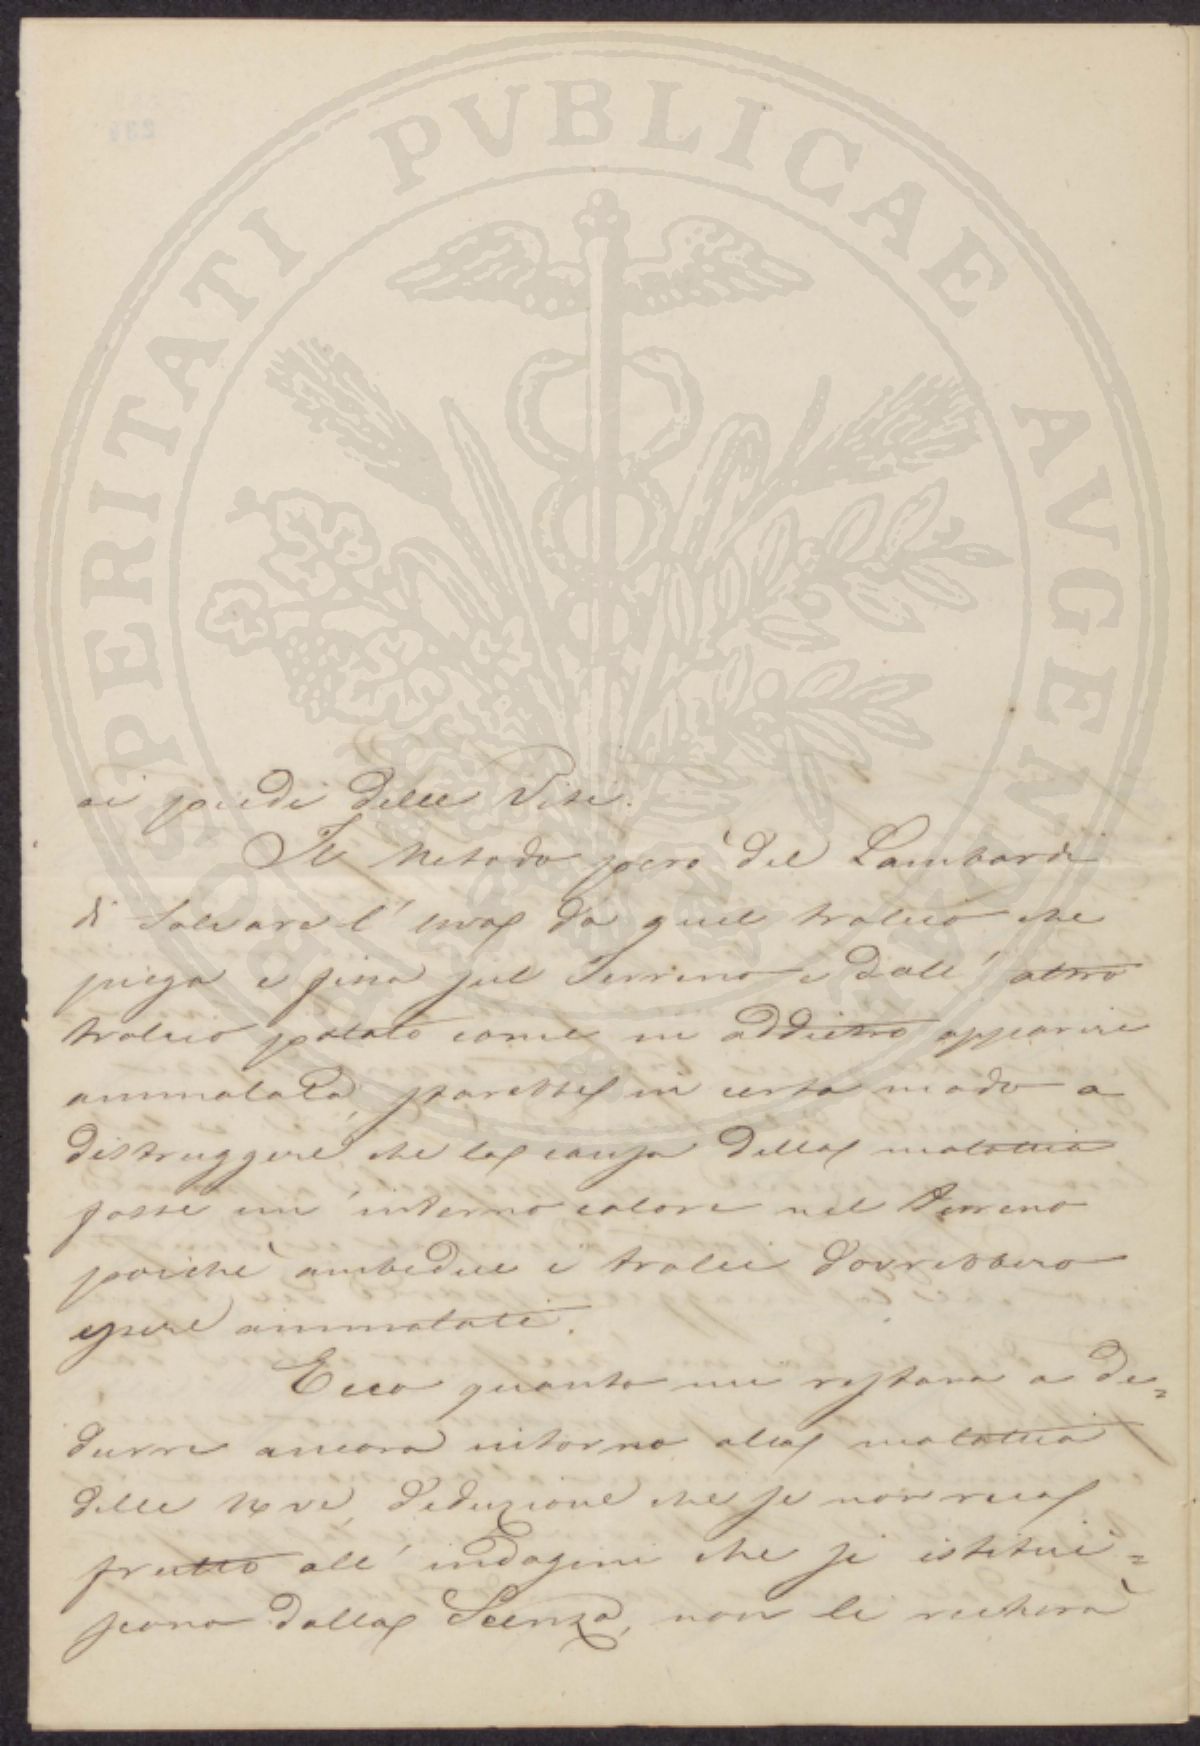 PROSPERITATI PVBLICAE AVGENDAE
ai piedi delle Viti.
Il Metodo però del Lambardi
di salvare l'uva da quel tralcio che
piega e fissa sul Terreno e dall'altro
tralcio potato come in addietro apparire
ammalata, starebbe in certo modo a
distruggere che la causa della malattia
fosse un'interno calore nel Terreno
poichè ambedue i tralci dovrebbero
essere ammalati.
Ecco quanto mi restava a de=
durre ancora intorno alla malattia
delle Uve, deduzione che se non reca
frutto all'indagini che si istitui=
scono dalla Scenza, non le recherà